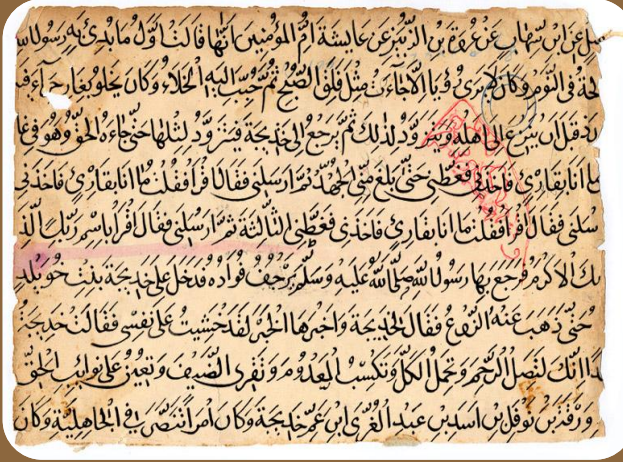 عن ابن شهاب عن عروة بن الزبير عن عايشة ام المؤمنين انها قالت اول ما بدئ به رسول
في النوم وكان لا يرى رؤيا الا جاءت مثل فلق الصبح ثم حبب اليه الخلاء وكان يخلو بغار حراء
قبل ان ينزع الى اهله ويتزود لذلك ثم يرجع الى خديجة فيتزود لمثلها حتى جاءه الحق وهو في
ما انا بقارئ فاخذني فغطني حتى بلغ مني الجهد ثم ارسلني فقال اقرا فقلت ما انا بقارئ فاخذني
سلني فقال اقرا فقلت ما انا بقارئ فاخذني فغطني الثالثة ثم ارسلني فقال اقرا باسم ربك الذ
بك الاكرم فرجع بها رسول الله صلى الله عليه وسلم يرجف فواده فدخل على خديجة بنت خويلد
حتى ذهب عنه الروع فقال لخديجة واخبرها الخبر لقد خشيت على نفسي فقالت خديجة
انك لتصل الرحم وتحمل الكل وتكسب المعدوم وتقري الضيف وتعين على نوايب الحق
ورقة بن نوفل بن اسد بن عبد العزى ابن عم خديجة وكان امرا تنصر في الجاهلية وكان